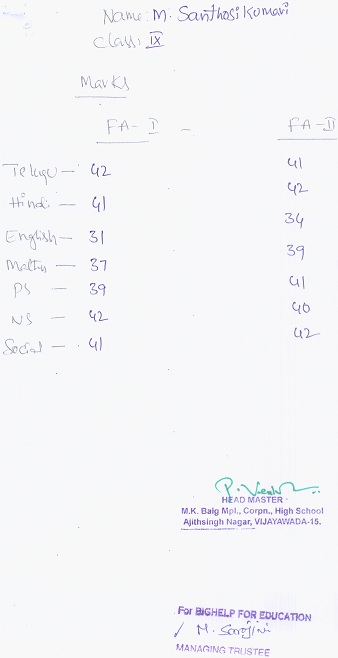 Name: M. Santhosi Kumari
Class: IX
Marks
FA- I - FA- II
Telugu — 42 41
Hindi — 41 42
English — 31 34
Maths — 37 39
PS — 39 41
NS — 42 40
Social — 41 42
HEAD MASTER
M.K. Baig Mpl., Corpn., High School
Ajithsingh Nagar, VIJAYAWADA-15.
For BIGHELP FOR EDUCATION
M. Sarojini
MANAGING TRUSTEE